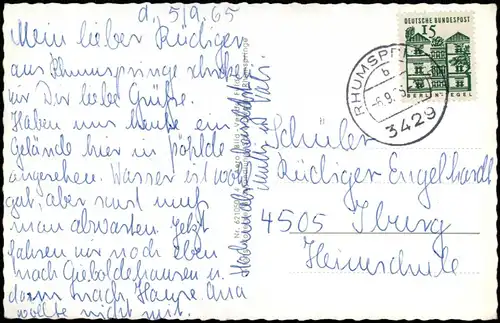 d. 5/9.65
Mein lieber Rüdiger
aus Rhumspringe schicken
wir Dir liebe Grüße.
Haben uns heute ein
Gelände hier in Pöhlde
angesehen. Wasser ist wohl
gut, aber sonst muß
man abwarten. Jetzt
fahren wir noch eben
nach Gieboldehausen u.
dann nach Hause. Ana
wollte nicht mit.
Mutti u. Vati
DEUTSCHE BUNDESPOST
15
BERLIN-TEGEL
RHUMSPRINGE
b
-6.9.65
3429
Schüler
Rüdiger Engelhardt
4505 Iburg
Heimschule